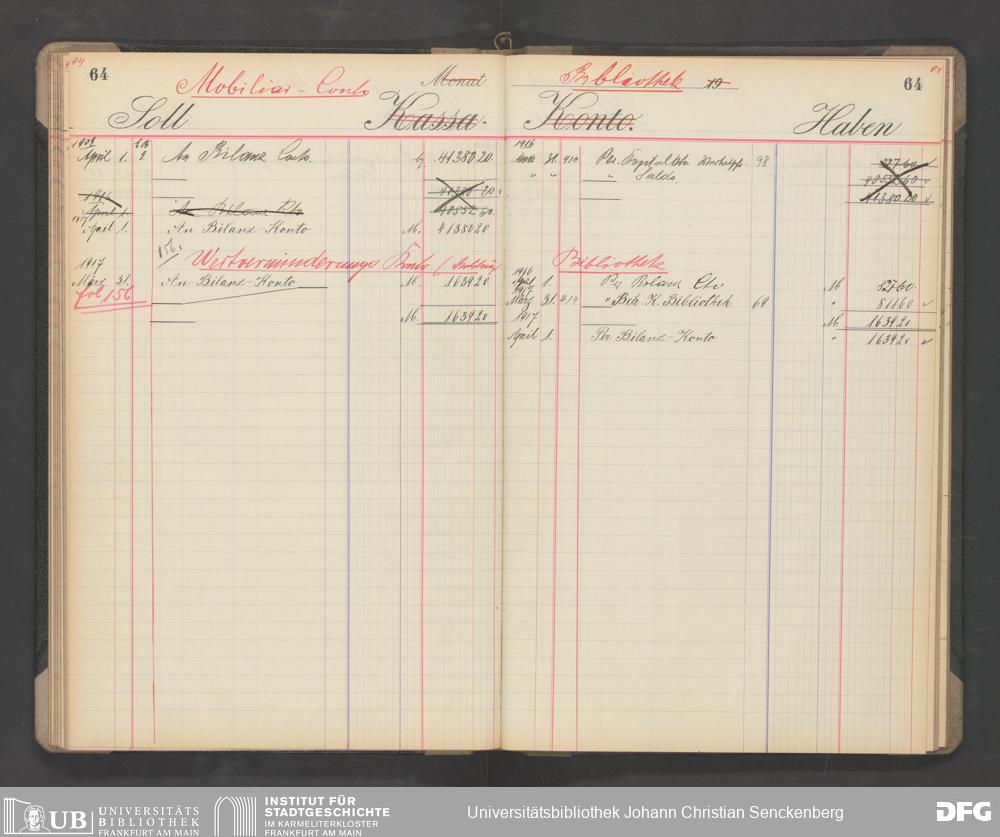 64
Mobiliar-Conto
Monat
Soll
Kassa.
1901
April 1. 2 An Bilanz Conto. 41380 20.
41380 20.
1916
April 1. An Bilanz Kto 40552 60.
1917
April 1. An Bilanz-Konto M. 41380 20
156.
Wertverminderungs Konto
1917
März 31. An Bilanz-Konto M. 1639 20
fol 156
M. 1639 20
Bibliothek 19
64
Konto.
Haben
1916
März 31. 410 Per Kapital Kto 98 827 60
" " " Saldo. 40552 60
41380 20
Bibliothek
1916
April 1. Per Bilanz Cto M 827 60.
1917
März 31. 414 " Betr. K. Bibliothek 69 " 811 60
1917
M. 1639 20
April 1. Per Bilanz-Konto " 1639 20
UB UNIVERSITÄTS
BIBLIOTHEK
FRANKFURT AM MAIN
INSTITUT FÜR
STADTGESCHICHTE
IM KARMELITERKLOSTER
FRANKFURT AM MAIN
Universitätsbibliothek Johann Christian Senckenberg
DFG